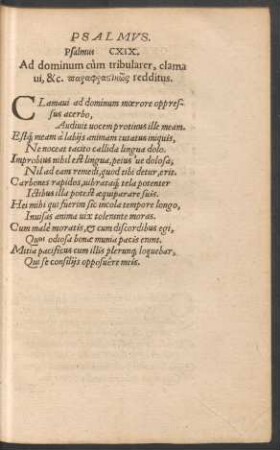 PSALMVS.
Psalmus CXIX.
Ad dominum cùm tribularer, clama
ui, &c. παραφραστικῶς redditus.
CLamaui ad dominum mœrore oppres-
sus acerbo,
Audiuit uocem protinus ille meam.
Estq́; meam à labijs animam tutatus iniquis,
Ne noceat tacito callida lingua dolo.
Improbius nihil est lingua, peius ue dolosa,
Nil ad eam remedi, quod tibi detur, erit.
Carbones rapidos, uibrataq́; tela potenter
Ictibus illa potest æquiparare suis.
Hei mihi qui fuerim sic incola tempore longo,
Inuisas anima uix tolerante moras.
Cum malè moratis, & cum discordibus egi,
Quîs odiosa bonæ munia pacis erant.
Mitia pacificus cum illis plerunq; loquebar,
Qui se consilijs opposuêre meis.